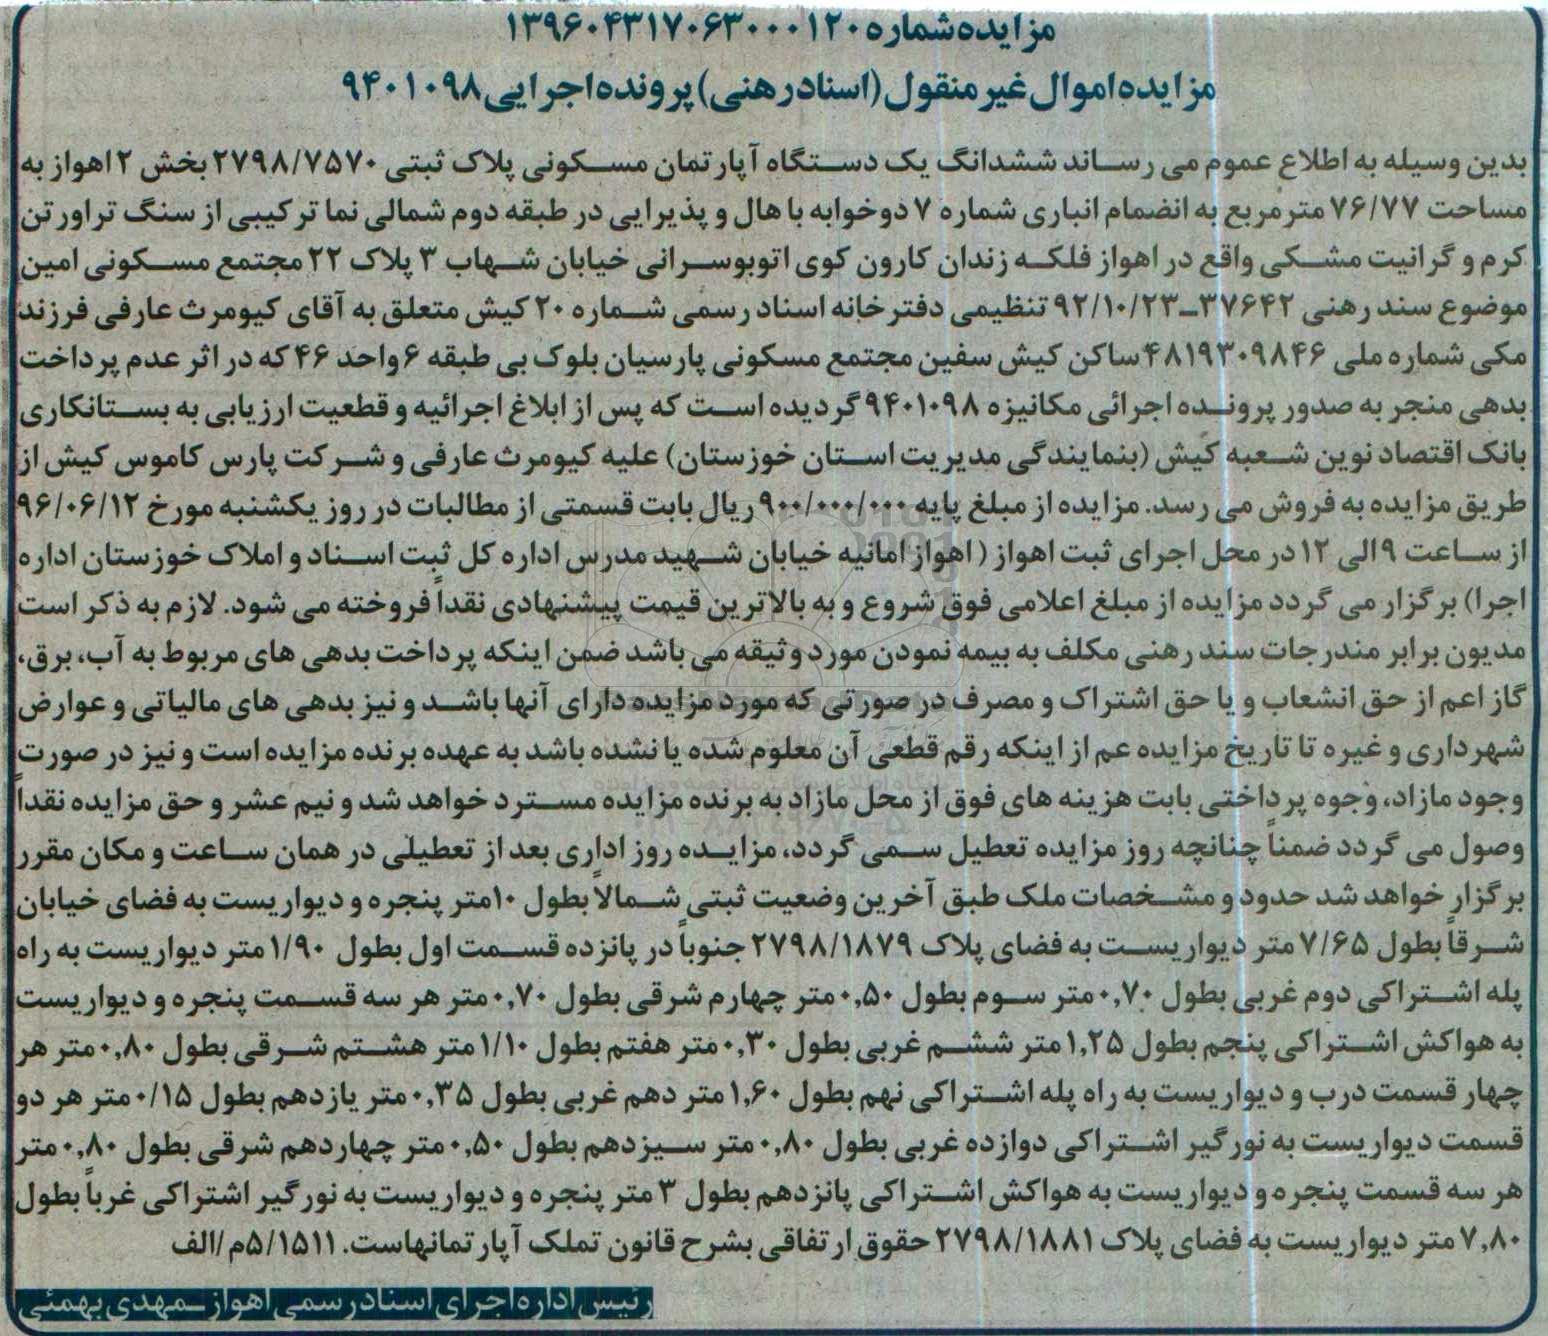 مزایده شماره ۱۳۹۶۰۴۳۱۷۰۶۳۰۰۰۱۲۰
مزایده اموال غیر منقول (اسناد رهنی) پرونده اجرایی ۹۴۰۱۰۹۸
بدین وسیله به اطلاع عموم می رساند ششدانگ یک دستگاه آپارتمان مسکونی پلاک ثبتی ۲۷۹۸/۷۵۷۰ بخش ۲ اهواز به
مساحت ۷۶/۷۷ مترمربع به انضمام انباری شماره ۷ دوخوابه با هال و پذیرایی در طبقه دوم شمالی نما ترکیبی از سنگ تراورتن
کرم و گرانیت مشکی واقع در اهواز فلکه زندان کارون کوی اتوبوسرانی خیابان شهاب ۳ پلاک ۲۲ مجتمع مسکونی امین
موضوع سند رهنی ۳۷۶۴۲-۹۲/۱۰/۲۳ تنظیمی دفترخانه اسناد رسمی شماره ۲۰ کیش متعلق به آقای کیومرث عارفی فرزند
مکی شماره ملی ۴۸۱۹۳۰۹۸۴۶ ساکن کیش سفین مجتمع مسکونی پارسیان بلوک بی طبقه ۶ واحد ۴۶ که در اثر عدم پرداخت
بدهی منجر به صدور پرونده اجرائی مکانیزه ۹۴۰۱۰۹۸ گردیده است که پس از ابلاغ اجرائیه و قطعیت ارزیابی به بستانکاری
بانک اقتصاد نوین شعبه کیش (بنمایندگی مدیریت استان خوزستان) علیه کیومرث عارفی و شرکت پارس کاموس کیش از
طریق مزایده به فروش می رسد. مزایده از مبلغ پایه ۹۰۰/۰۰۰/۰۰۰ ریال بابت قسمتی از مطالبات در روز یکشنبه مورخ ۹۶/۰۶/۱۲
از ساعت ۹ الی ۱۲ در محل اجرای ثبت اهواز (اهواز امانیه خیابان شهید مدرس اداره کل ثبت اسناد و املاک خوزستان اداره
اجرا) برگزار می گردد مزایده از مبلغ اعلامی فوق شروع و به بالاترین قیمت پیشنهادی نقداً فروخته می شود. لازم به ذکر است
مدیون برابر مندرجات سند رهنی مکلف به بیمه نمودن مورد وثیقه می باشد ضمن اینکه پرداخت بدهی های مربوط به آب، برق،
گاز اعم از حق انشعاب و یا حق اشتراک و مصرف در صورتی که مورد مزایده دارای آنها باشد و نیز بدهی های مالیاتی و عوارض
شهرداری و غیره تا تاریخ مزایده عم از اینکه رقم قطعی آن معلوم شده یا نشده باشد به عهده برنده مزایده است و نیز در صورت
وجود مازاد، وجوه پرداختی بابت هزینه های فوق از محل مازاد به برنده مزایده مسترد خواهد شد و نیم عشر و حق مزایده نقداً
وصول می گردد ضمناً چنانچه روز مزایده تعطیل سمی گردد، مزایده روز اداری بعد از تعطیلی در همان ساعت و مکان مقرر
برگزار خواهد شد حدود و مشخصات ملک طبق آخرین وضعیت ثبتی شمالاً بطول ۱۰ متر پنجره و دیواریست به فضای خیابان
شرقاً بطول ۷/۶۵ متر دیواریست به فضای پلاک ۲۷۹۸/۱۸۷۹ جنوباً در پانزده قسمت اول بطول ۱/۹۰ متر دیواریست به راه
پله اشتراکی دوم غربی بطول ۰,۷۰ متر سوم بطول ۰,۵۰ متر چهارم شرقی بطول ۰,۷۰ متر هر سه قسمت پنجره و دیواریست
به هواکش اشتراکی پنجم بطول ۱,۲۵ متر ششم غربی بطول ۰,۳۰ متر هفتم بطول ۱/۱۰ متر هشتم شرقی بطول ۰,۸۰ متر هر
چهار قسمت درب و دیواریست به راه پله اشتراکی نهم بطول ۱,۶۰ متر دهم غربی بطول ۰,۳۵ متر یازدهم بطول ۰/۱۵ متر هر دو
قسمت دیواریست به نورگیر اشتراکی دوازده غربی بطول ۰,۸۰ متر سیزدهم بطول ۰,۵۰ متر چهاردهم شرقی بطول ۰,۸۰ متر
هر سه قسمت پنجره و دیواریست به هواکش اشتراکی پانزدهم بطول ۳ متر پنجره و دیواریست به نورگیر اشتراکی غرباً بطول
۷,۸۰ متر دیواریست به فضای پلاک ۲۷۹۸/۱۸۸۱ حقوق ارتفاقی بشرح قانون تملک آپارتمانهاست. ۵/۱۵۱۱م/الف
رئیس اداره اجرای اسناد رسمی اهواز - مهدی بهمئی